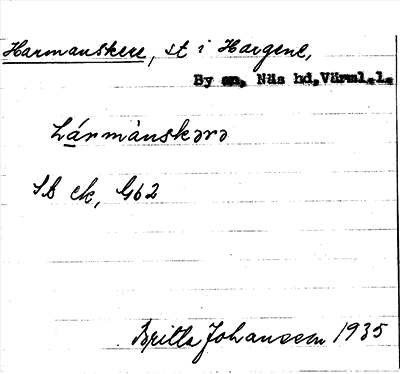 Harmanskere, st i Hargene,
By sn, Näs hd, Värml.l.
hármànskərə
SB ek, G62
Britta Johansson 1935